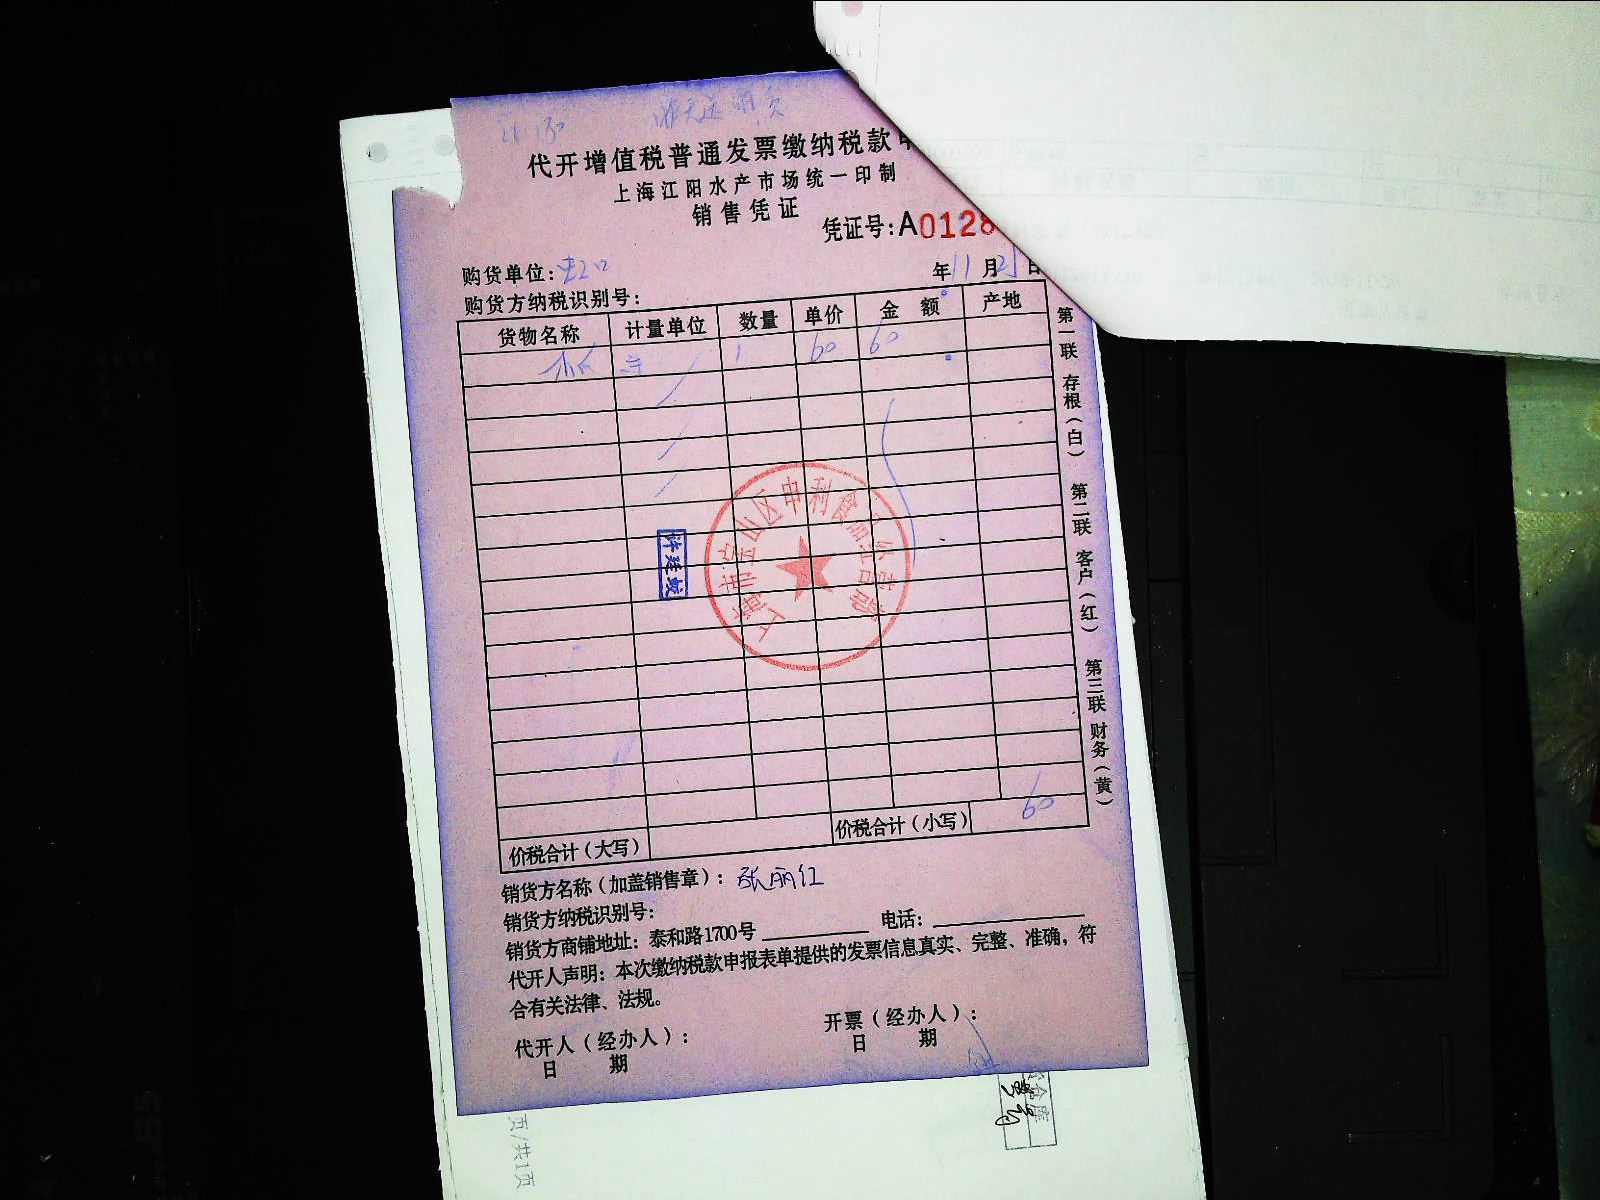 代开增值税普通发票缴纳税款
上海江阳水产市场统一印制
销售凭证
凭证号:A0128
购货单位:
年11月25日
购货方纳税识别号:
货物名称 计量单位 数量 单价 金 额 产地
1 60 60
第一联 存根(白) 第二联 客户(红) 第三联 财务(黄)
上海市宝山区申利食品经营部
价税合计(大写) 价税合计(小写) 60
销货方名称(加盖销售章): 张丽红
销货方纳税识别号:
销货方商铺地址: 泰和路1700号 电话:
代开人声明: 本次缴纳税款申报表单提供的发票信息真实、完整、准确, 符
合有关法律、法规。
代开人(经办人): 开票(经办人):
日 期 日 期
页/共1页